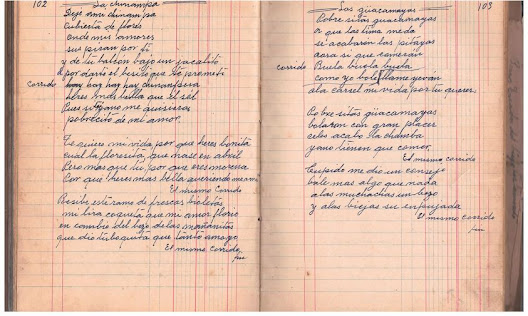 102
La chinampa
Deje mi chinampa
Cubierta de flores
onde mis amores
suspiran por ti
y de tu balcon bajo un jacalito
a por darte el besito que te prometi
corrido hay hay hay chinampera
eres mas bella que el sol
Pues si tu no me quisieras
pobrecito de mi amor.
Te quiero mi vida por que heres bonita
cual la florecita que nase en abril
Pero mas que tu por que eres morena
Por que heres mas bella queriendome a mi
El mismo Corrido
Resibe este ramo de frescas bioletas
mi tira coqueta que mi amor
en cambio del beso de las mañanitas
que dio tu boquita que tanto
El mismo corrido
fin
103
Las guacamayas
Pobresitas guacamayas
a que lastima me da
se acabaron las pitayas
aora si que comeran
corrido Buela buela buela
como yo bole llame yevan
ala carsel mi vida por tu querer.
Pobresitas guacamayas
bolaron con gran placer
seles acabo la chamba
yano tienen que comer
El mismo corrido
Cupido me dio un consejo
bale mas algo que nada
a las muchachas un beso
y alas biejas su enpujada
El mismo corrido
fin